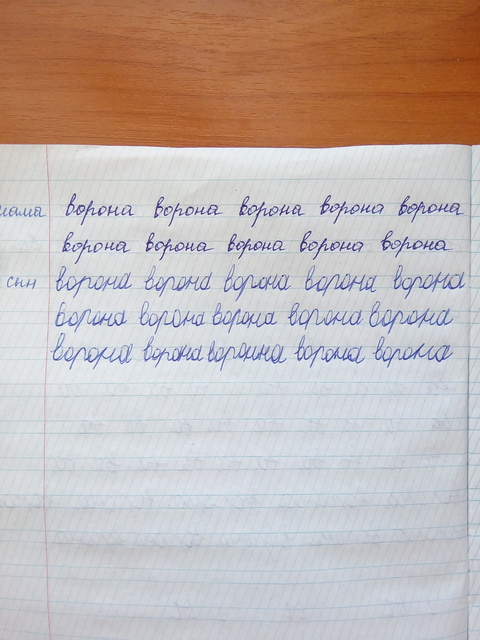 мама ворона ворона ворона ворона ворона
ворона ворона ворона ворона ворона
син ворона ворона ворона ворона ворона
ворона ворона ворона ворона ворона
ворона ворона вороина ворона ворона